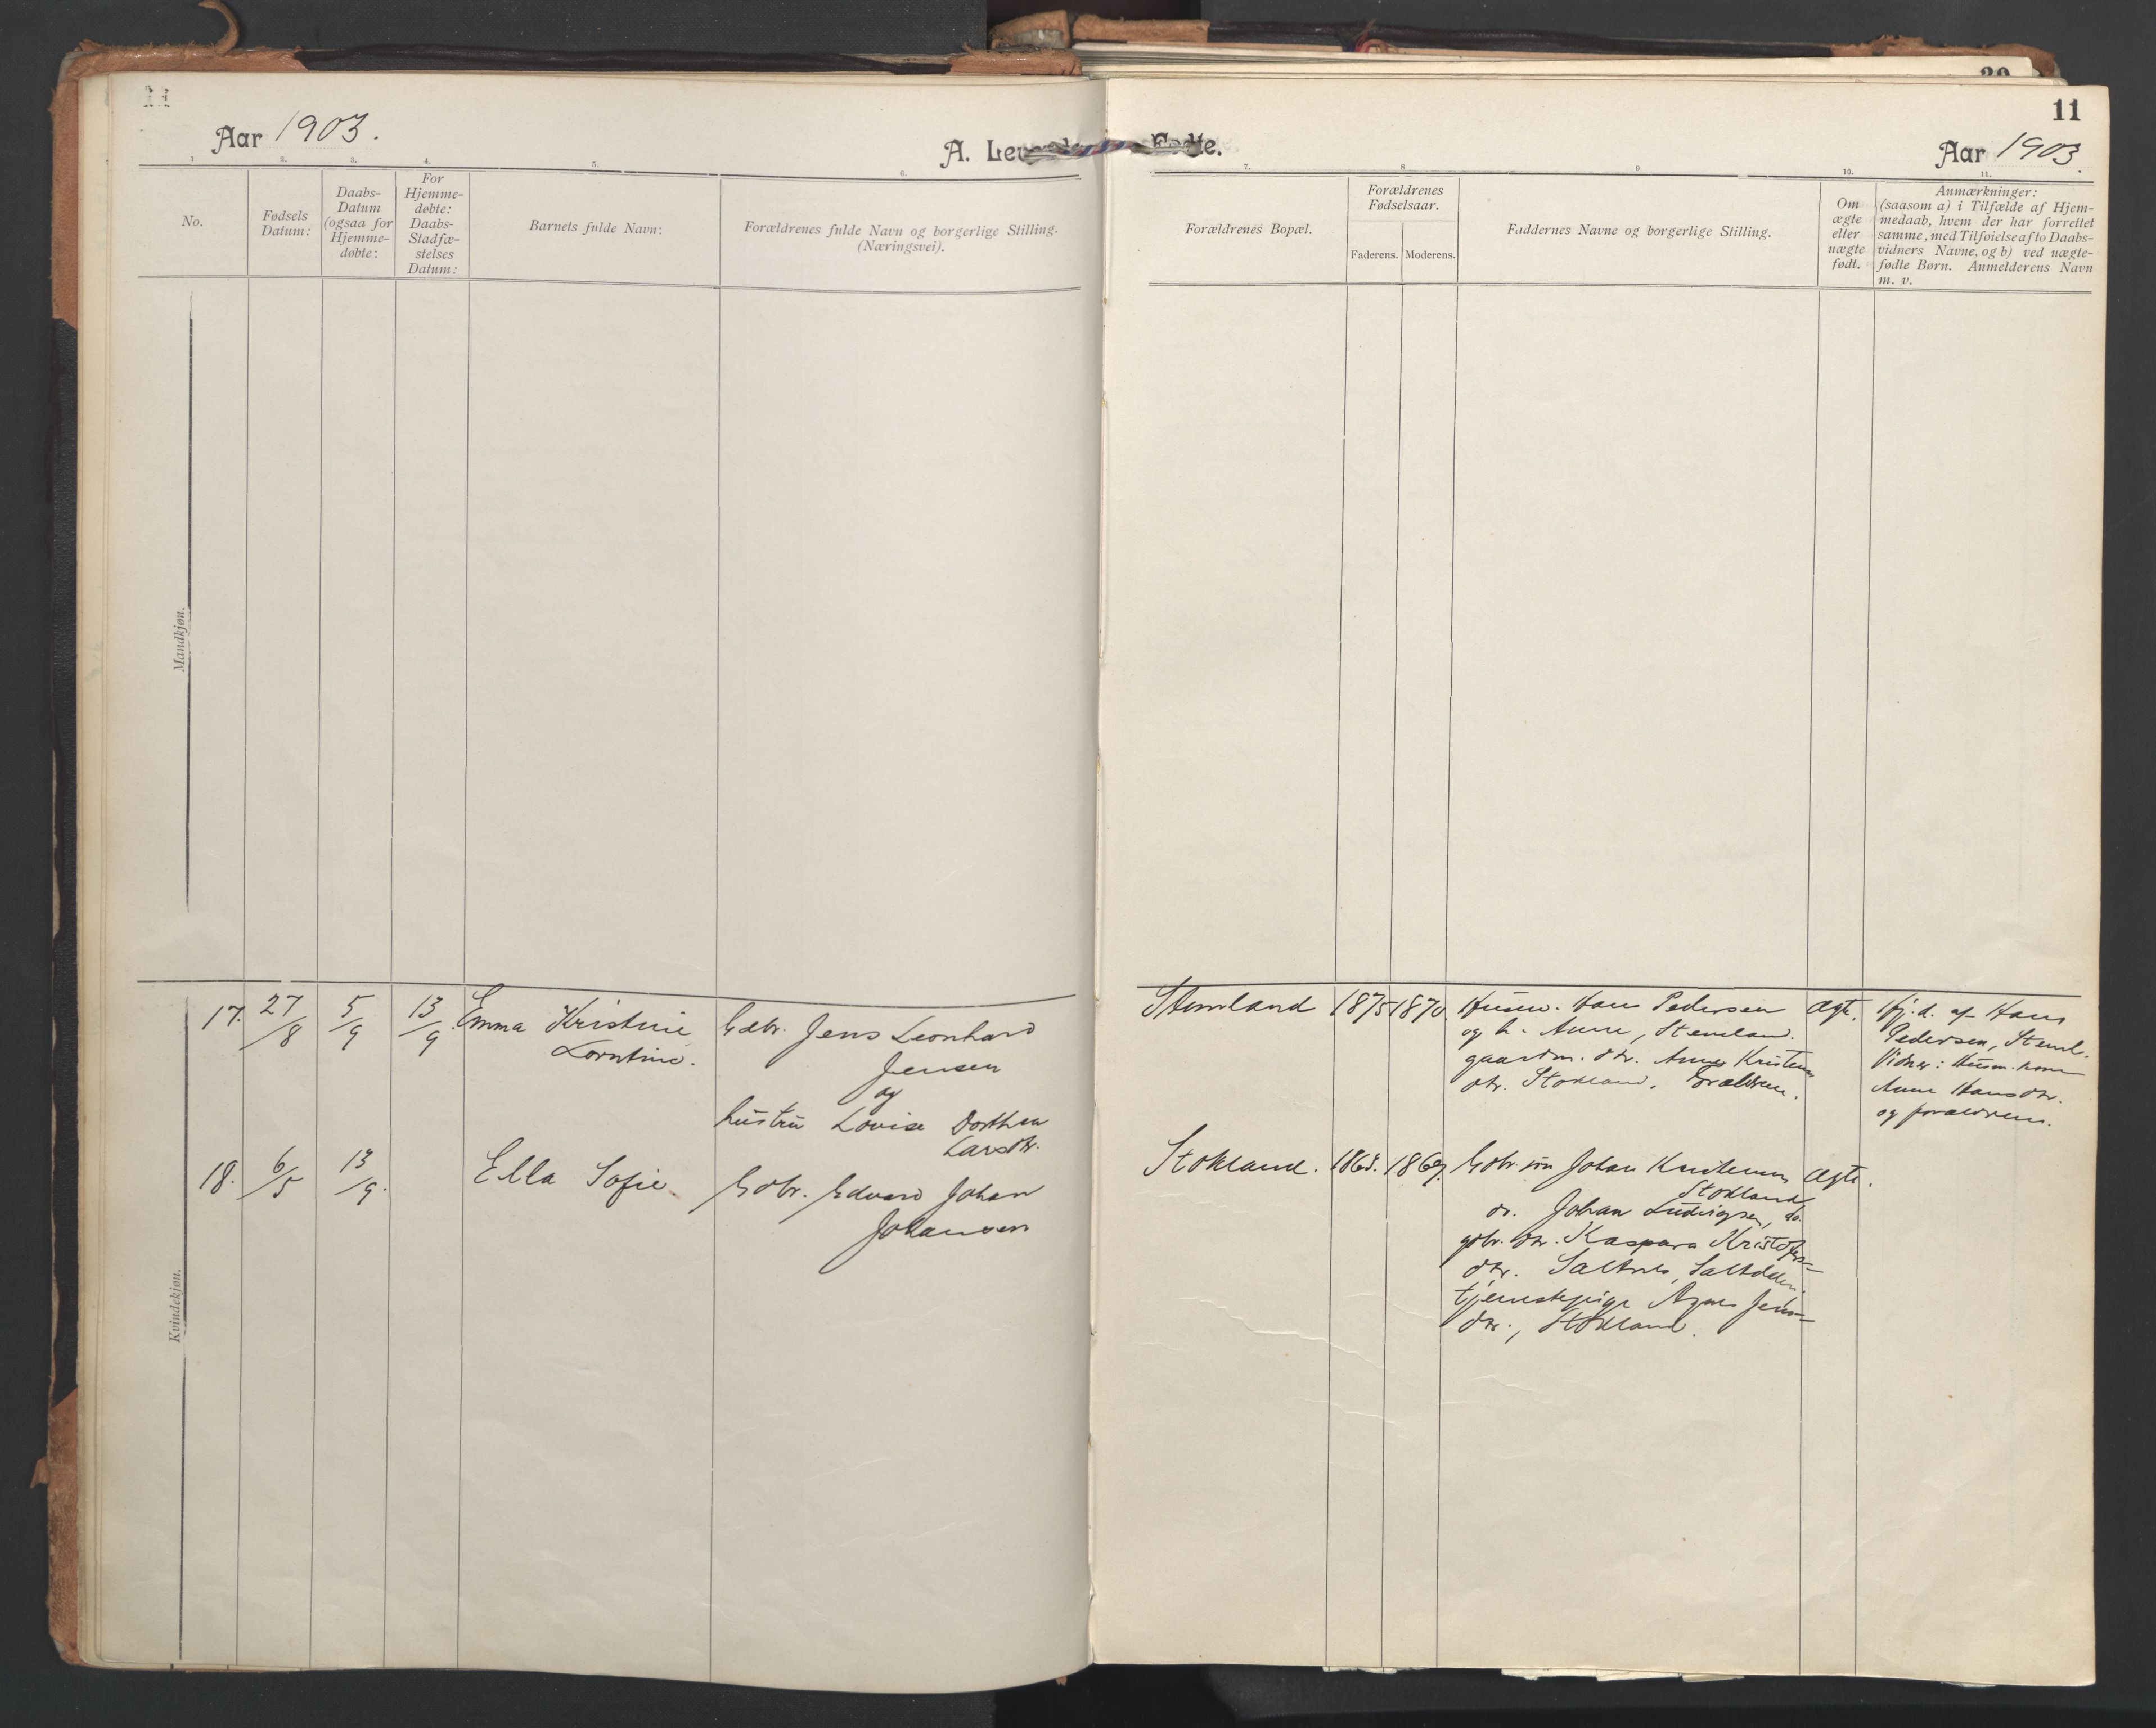 Aar 1903.
A. Levende Fødte.
11
Aar 1903.
1.
2.
3.
4.
5.
6.
7.
8.
9
10.
11.
No.
Fødsels
Datum:
Daabs-
Datum
(ogsaa for
Hjemme-
døbte:
For
Hjemme-
døbte:
Daabs-
Stadfæ-
stelses
Datum:
Barnets fulde Navn:
Forældrenes fulde Navn og borgerlige Stilling.
(Næringsvei).
Forældrenes Bopæl.
Forældrenes
Fødselsaar.
Faderens. Moderens.
Faddernes Navne og borgerlige Stilling.
Om
ægte
eller
uægte
født.
Anmærkninger:
(saasom a) i Tilfælde af Hjem-
medaab, hvem der har forrettet
samme, med Tilføielse af to Daabs-
vidners Navne, og b) ved uægte-
fødte Børn. Anmelderens Navn
m. v.
Mandkjøn.
Kvindekjøn.
17. 27/8 5/9 13/9 Emma Kristine
Lorntine.
Gdbr. Jens Leonhard
Jensen
og
hustru Lovise Dorthea
Larsdtr.
Stemland 1875 1870.
Husm. Hans Pedersen
og h. Anne, Stemland.
gaardm. dtr. Anne Kristens
dtr. Stokland. Forældrene.
Ægte.
Hj. d. af Hans
Pedersen, Steml.
Vidner: Husm. kone
Anne Hansdtr.
og forældrene.
18. 6/5 13/9. Ella Sofie
Gdbr. Edvard Johan
Johansen
Stokland. 1869.
Gdbr. søn Johan Kristensen
Stokland
do. Johan Ludvigsen, do.
gdbr. dtr. Kaspara Kristofers-
dtr. Saltnes, Saltdalen.
tjenestepige Agnes Jens-
dtr., Stokland.
Ægte.